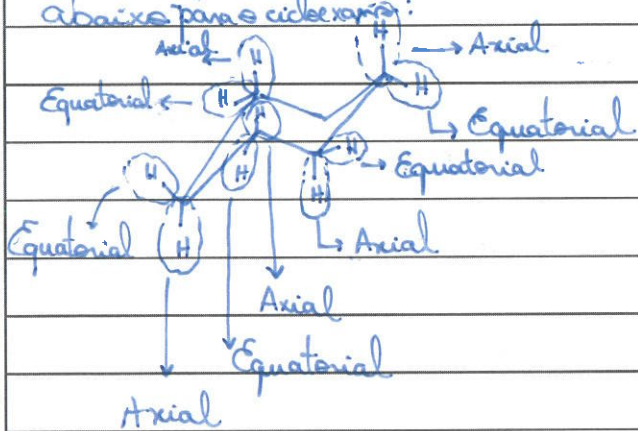 abaixo para o cicloexano:
Axial H H Axial
Equatorial H H H Equatorial
H H Equatorial
H H
Equatorial H Axial
Axial
Equatorial
Axial